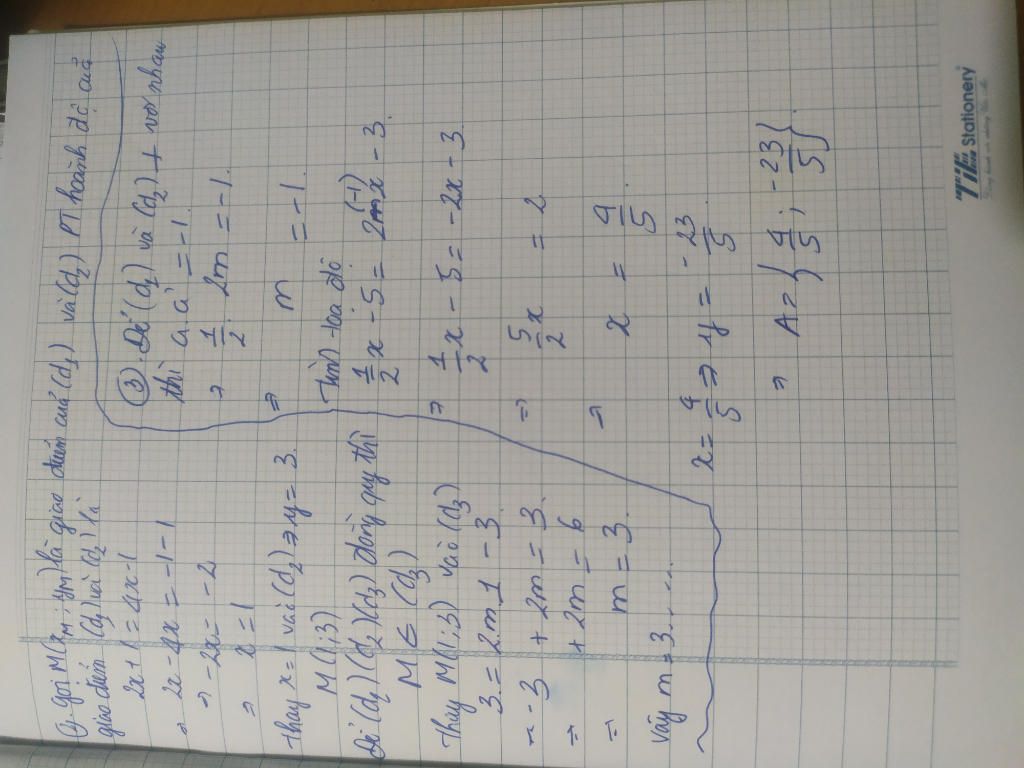 gọi M(x_M; y_M) là giao điểm của (d1) và (d2) PT hoành độ của
giao điểm (d1) với (d2) là
2x + 1 = 4x - 1
⇒ 2x - 4x = -1 - 1
⇒ -2x = -2
⇒ x = 1
thay x = 1 vào (d2) ⇒ y = 3.
M(1;3)
Để (d1) (d2) (d3) đồng quy thì
M ∈ (d3)
Thay M(1;3) vào (d3)
3 = 2m.1 - 3
- 3 + 2m = 3.
⇒ + 2m = 6
= m = 3.
Vậy m = 3.....
③. Để (d1) và (d2) ⊥ với nhau
thì a.a' = -1.
⇒ 1/2 . 2m = -1.
⇒ m = -1.
Tìm toạ độ
1/2 x - 5 = 2m(-1)x - 3.
⇒ 1/2 x - 5 = -2x - 3
⇒ 5/2 x = 2
⇒ x = 4/5.
x = 4/5 ⇒ y = -23/5
⇒ A = { 4/5 ; -23/5 }.
TiTi Stationery